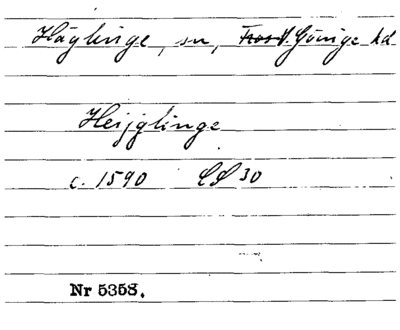 Häglinge, sn, V. Göinge hd
Heijglinge
c. 1590 LS 30
Nr 5358.